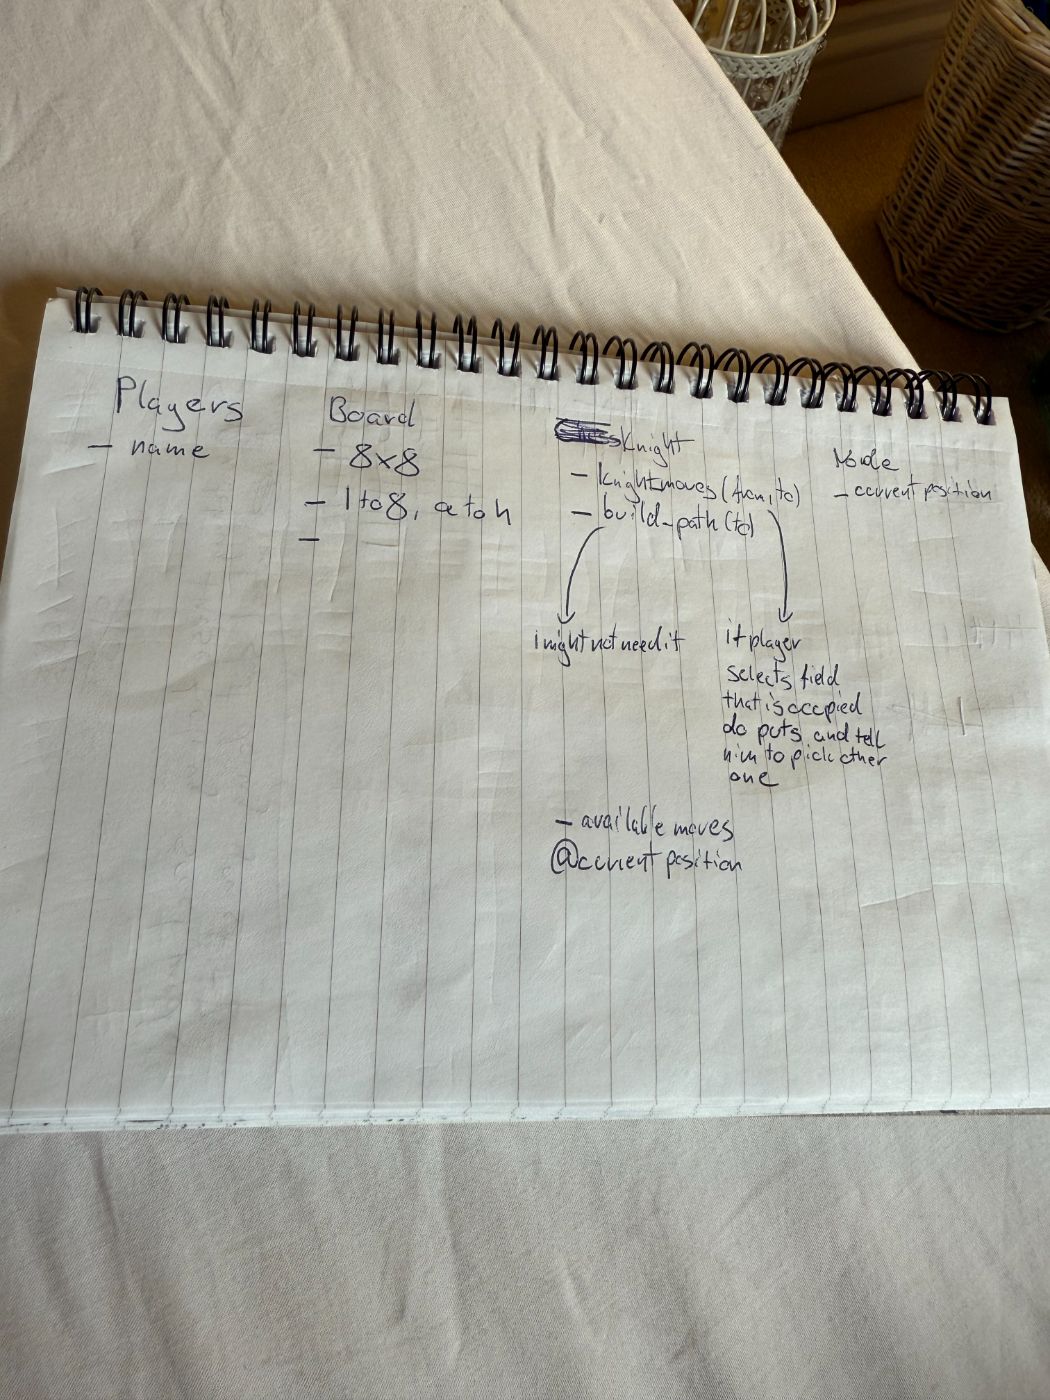 Players
- name
Board
- 8x8
- 1 to 8, a to h
-
Knight
- knightmoves (from, to)
- build_path(to)
i might not need it
if player
selects field
that is occupied
do puts and tell
him to pick other
one
- available moves
@current position
Node
- current position